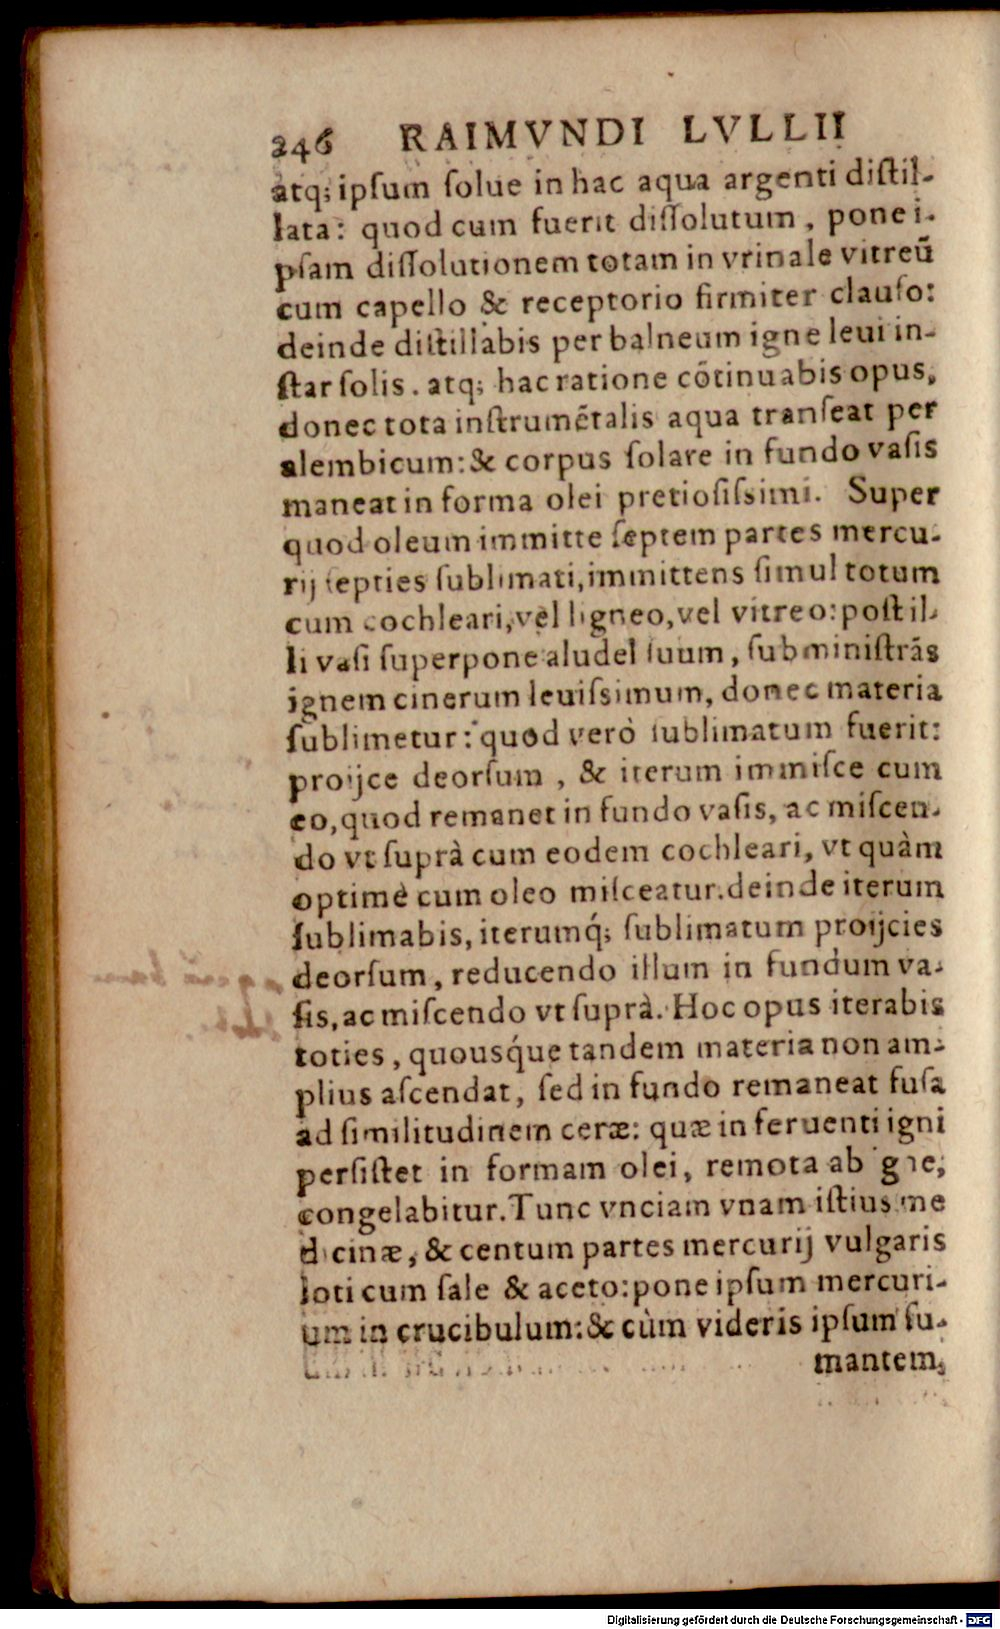 246 RAIMVNDI LVLLII
atq; ipſum ſolue in hac aqua argenti diſtil-
lata: quod cum fuerit diſſolutum, pone i-
pſam diſſolutionem totam in vrinale vitreũ
cum capello & receptorio firmiter clauſo:
deinde diſtillabis per balneum igne leui in-
ſtar ſolis. atq; hac ratione cõtinuabis opus,
donec tota inſtrumẽtalis aqua tranſeat per
alembicum: & corpus ſolare in fundo vaſis
maneat in forma olei pretioſiſsimi. Super
quod oleum immitte ſeptem partes mercu-
rij ſepties ſublimati, immittens ſimul totum
cum cochleari, vel ligneo, vel vitreo: poſt il-
li vaſi ſuperpone aludel ſuum, ſubminiſtrãs
ignem cinerum leuiſsimum, donec materia
ſublimetur: quod verò ſublimatum fuerit:
proijce deorſum, & iterum immiſce cum
eo, quod remanet in fundo vaſis, ac miſcen-
do vt ſuprà cum eodem cochleari, vt quàm
optimè cum oleo miſceatur. deinde iterum
ſublimabis, iterumq́; ſublimatum proijcies
deorſum, reducendo illum in fundum va-
ſis, ac miſcendo vt ſuprà. Hoc opus iterabis
toties, quousq́ue tandem materia non am-
plius aſcendat, ſed in fundo remaneat fuſa
ad ſimilitudinem ceræ: quæ in feruenti igni
perſiſtet in formam olei, remota ab igne,
congelabitur. Tunc vnciam vnam iſtius me
dicinæ, & centum partes mercurij vulgaris
loti cum ſale & aceto: pone ipſum mercuri-
um in crucibulum: & cùm videris ipſum fu-
mantem,
Digitalisierung gefördert durch die Deutsche Forschungsgemeinschaft - DFG